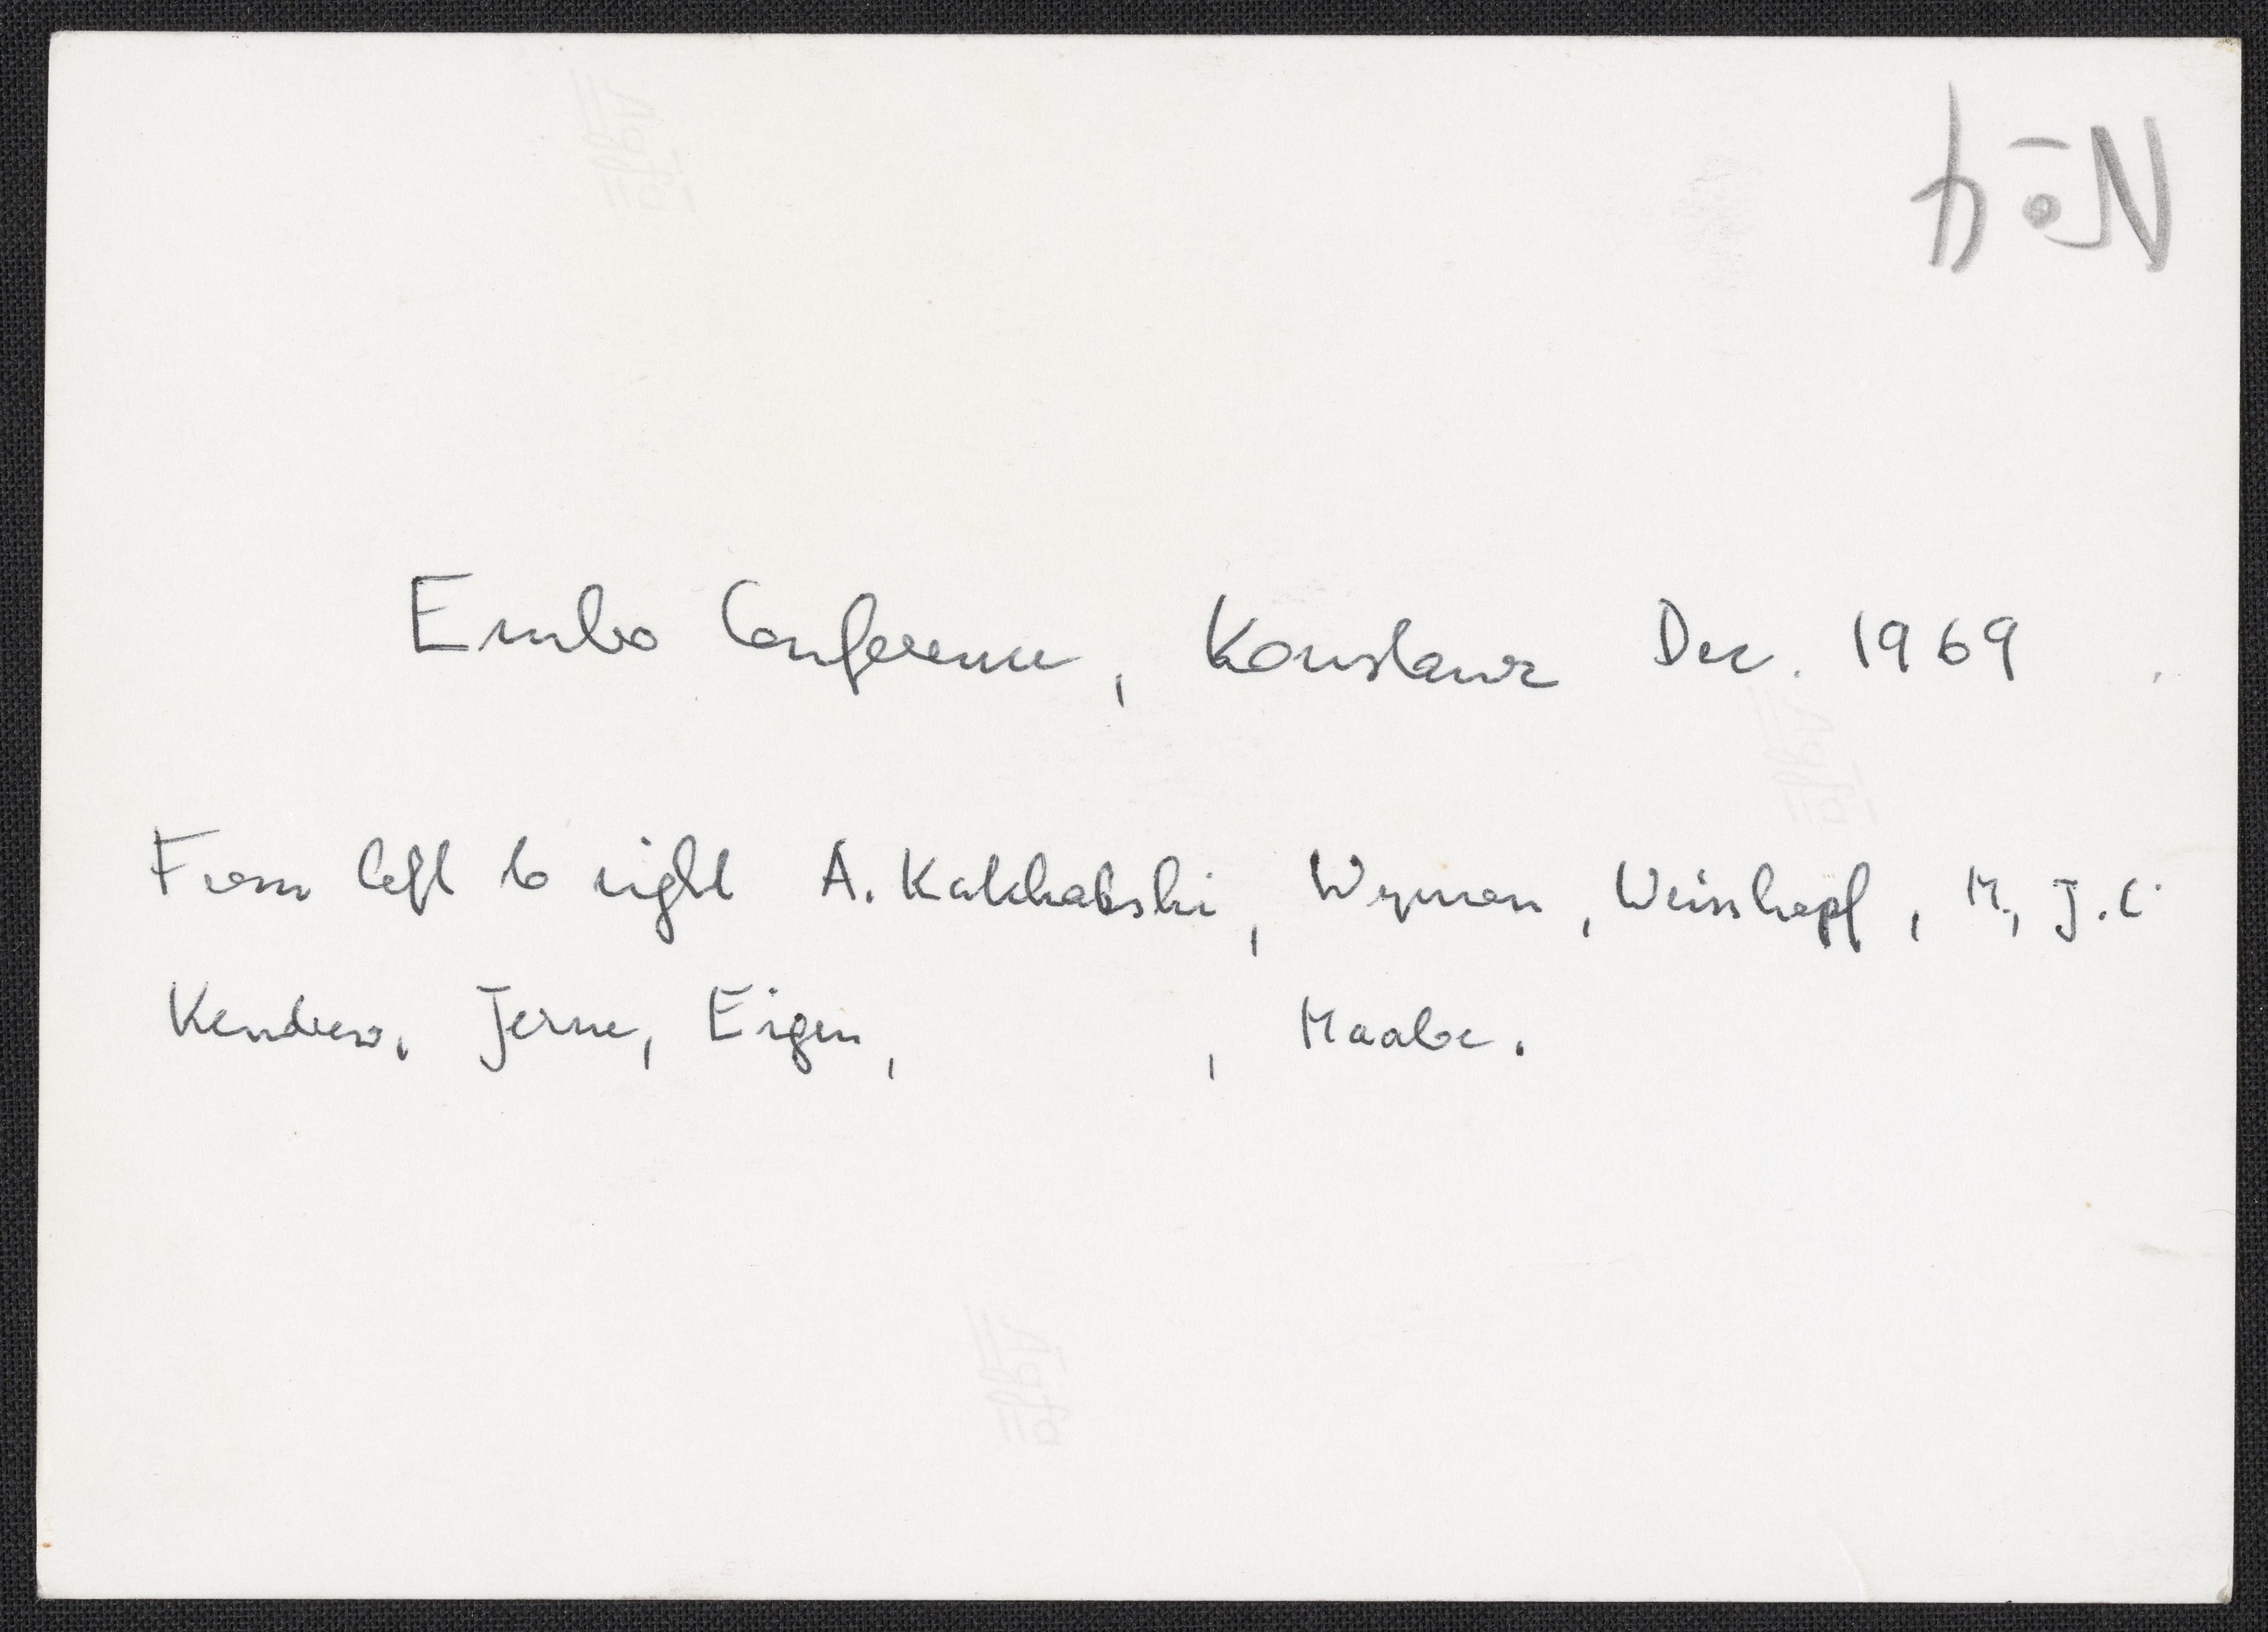 No 4
Embo Conference, Konstanz Dec. 1969
From left to right A. Katchalski, Wyman, Weisskopf, M., J.C.
Kendrew, Jerne, Eigen, , Maaloe.